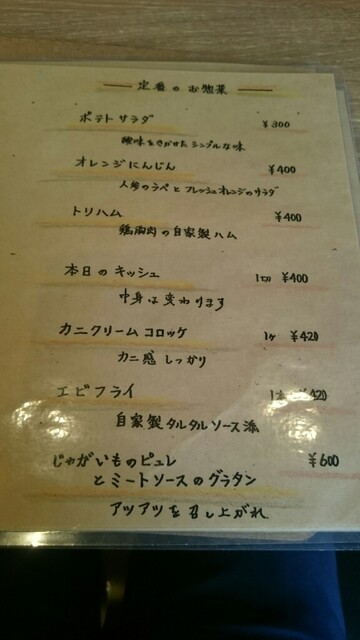 定番のお惣菜
ポテトサラダ ¥300
酸味をきかせたシンプルな味
オレンジにんじん ¥400
人参のラペとフレッシュオレンジのサラダ
トリハム ¥400
鶏胸肉の自家製ハム
本日のキッシュ 1切 ¥400
中身は変わります
カニクリームコロッケ 1ヶ ¥420
カニ感しっかり
エビフライ 1本 ¥420
自家製タルタルソース添
じゃがいものピュレ ¥600
とミートソースのグラタン
アツアツを召し上がれ